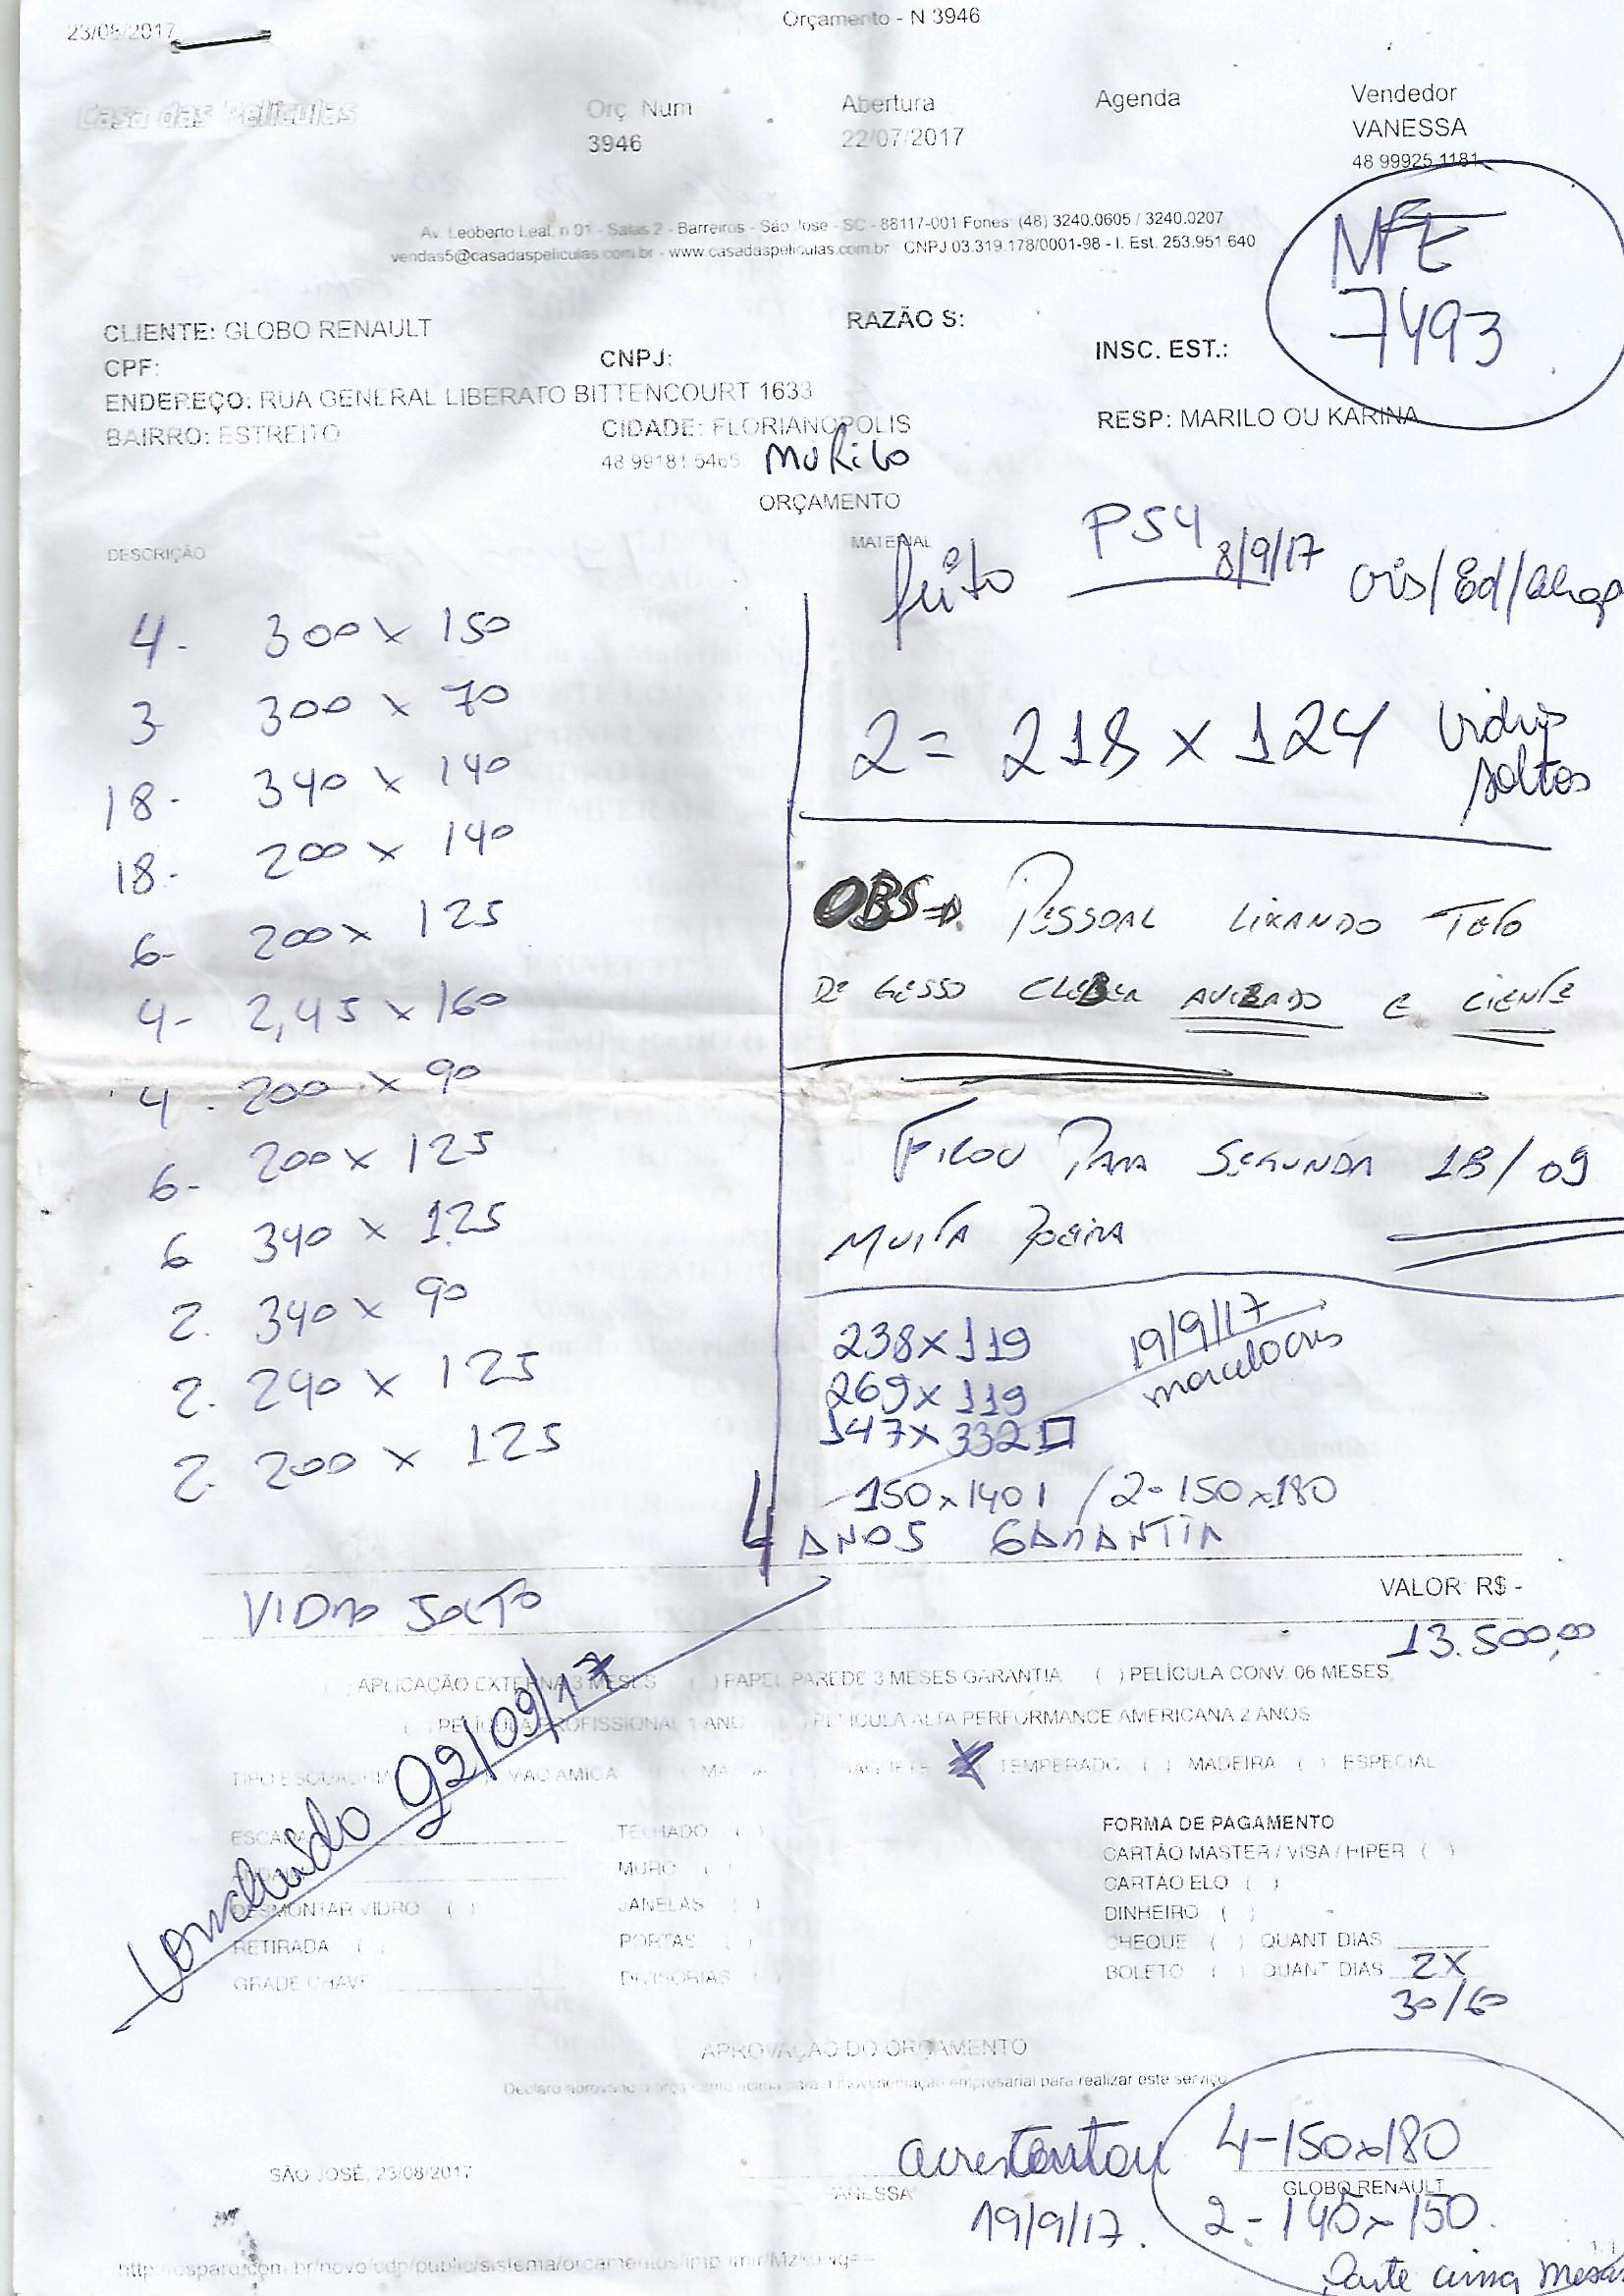 23/08/2017
Orçamento - N 3946
Casa das Películas
Orç Num
3946
Abertura
22/07/2017
Agenda
Vendedor
VANESSA
48 99925 1181
Av. Leoberto Leal, n 01 - Salas 2 - Barreiros - São Jose - SC - 88117-001 Fones: (48) 3240.0605 / 3240.0207
vendas5@casadaspeliculas.com.br - www.casadaspeliculas.com.br CNPJ 03.319.178/0001-98 - I. Est. 253.951.640
NFE
7493
CLIENTE: GLOBO RENAULT
RAZÃO S:
CPF:
CNPJ:
INSC. EST.:
ENDEREÇO: RUA GENERAL LIBERATO BITTENCOURT 1633
BAIRRO: ESTREITO
CIDADE: FLORIANOPOLIS
RESP: MARILO OU KARINA
48 99181 5465 MURILO
ORÇAMENTO
DESCRIÇÃO
MATERIAL
PS4
feito 8/9/17
4- 300 x 150
3 300 x 70
18- 340 x 140
18- 200 x 140
6- 200 x 125
4- 2,45 x 160
4- 200 x 90
6- 200 x 125
6 340 x 125
2. 340 x 90
2. 240 x 125
2. 200 x 125
2 = 218 x 124 vidros
soltos
OBS PESSOAL LIXANDO TETO
DE GESSO CLEBER AVISADO E CIENTE
FICOU PARA SEGUNDA 18/09
MUITA POEIRA
238x119
269x119
147x332
19/9/17
150x140 1 / 2-150x180
4 ANOS GARANTIA
VIDRO SOLTO
VALOR R$ -
13.500,00
( ) APLICAÇÃO EXTERNA 3 MESES ( ) PAPEL PAREDE 3 MESES GARANTIA ( ) PELÍCULA CONV. 06 MESES
( ) PELÍCULA PROFISSIONAL 1 ANO ( ) PELICULA ALTA PERFORMANCE AMERICANA 2 ANOS
TEMPERADO ( ) MADEIRA ( ) ESPECIAL
Concluido 22/09/17
TELHADO ( )
MURO (
DESMONTAR VIDRO ( )
JANELAS ( )
RETIRADA ( )
PORTAS ( )
GRADE CHAVE
DIVISORIAS ( )
FORMA DE PAGAMENTO
CARTÃO MASTER / VISA / HIPER ( )
CARTÃO ELO ( )
DINHEIRO ( )
CHEQUE ( ) QUANT DIAS
BOLETO ( ) QUANT DIAS 2X
30/60
APROVAÇÃO DO ORÇAMENTO
empresarial para realizar este serviço
SÃO JOSÉ, 23/08/2017
VANESSA
GLOBO RENAULT
acrescentou
19/9/17.
4-150x180
2-145x150.
Parte cima
1/1